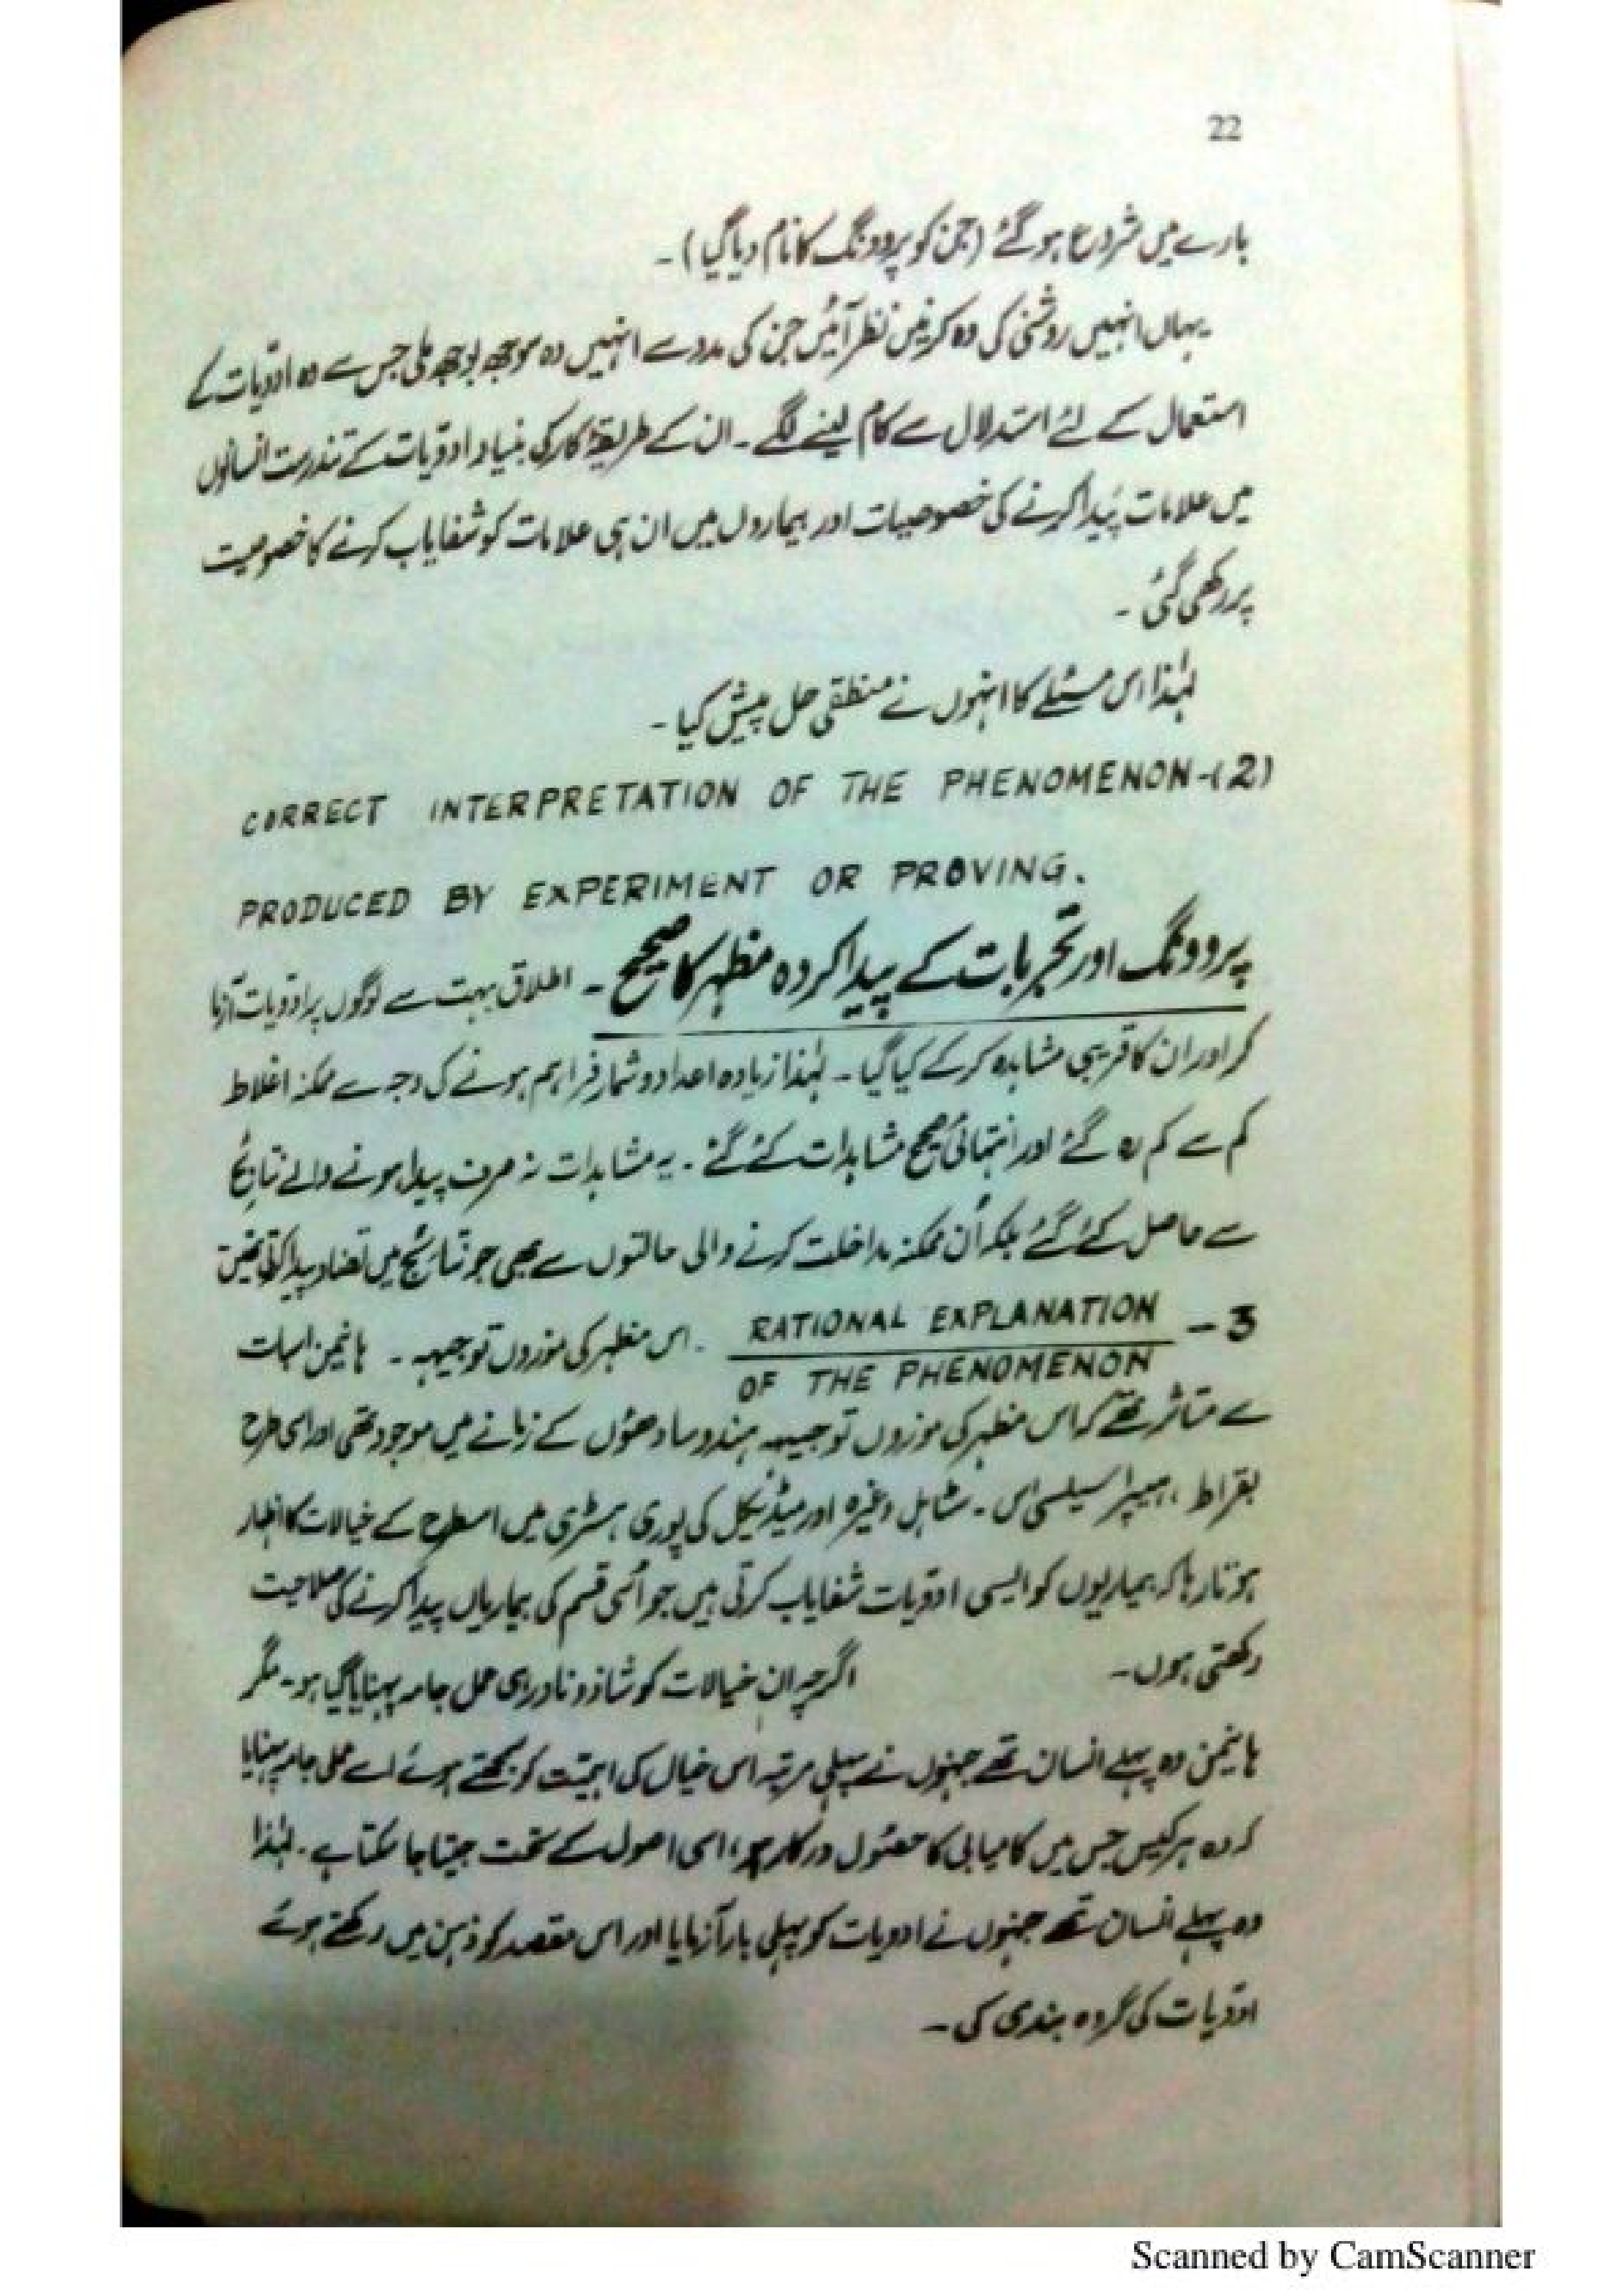 22
بارے میں شروع ہو گئے (جن کو پرووِنگ کا نام دیا گیا)۔
یہاں انہیں روشنی کی وہ کرنیں نظر آئیں جن کی مدد سے انہیں وہ سوجھ بوجھ ملی جس سے وہ ادویات کے
استعمال کے لئے استدلال سے کام لینے لگے۔ ان کے طریقۂ کار کی بنیاد ادویات کے تندرست انسانوں
میں علامات پیدا کرنے کی خصوصیات اور بیماروں میں ان ہی علامات کو شفایاب کرنے کا خصوصیت
پر رکھی گئی۔
لہٰذا اس مسئلے کا انہوں نے منطقی حل پیش کیا۔
CORRECT INTERPRETATION OF THE PHENOMENON-(2)
PRODUCED BY EXPERIMENT OR PROVING.
پرووِنگ اور تجربات کے پیدا کردہ مظہر کا صحیح۔ اطلاق بہت سے لوگوں پر ادویات آزما
کر اور ان کا قریبی مشاہدہ کر کے کیا گیا۔ لہٰذا زیادہ اعداد و شمار فراہم ہونے کی وجہ سے ممکنہ اغلاط
کم سے کم رہ گئے اور انتہائی صحیح مشاہدات کئے گئے۔ یہ مشاہدات نہ صرف پیدا ہونے والے نتائج
سے حاصل کئے گئے بلکہ اُن ممکنہ مداخلت کرنے والی حالتوں سے بھی جو نتائج میں تضاد پیدا کرتی تھیں
3 - RATIONAL EXPLANATION
OF THE PHENOMENON
۔ اس مظہر کی موزوں توجیہہ۔ ہانیمن اس بات
سے متاثر تھے کہ اس مظہر کی موزوں توجیہہ ہندو سادھوؤں کے زمانے میں موجود تھی اور اسی طرح
بقراط، پیراسیلسی اس۔ سٹاہل وغیرہ اور میڈیکل کی پوری ہسٹری میں اسطرح کے خیالات کا اظہار
ہوتا رہا کہ بیماریوں کو ایسی ادویات شفایاب کرتی ہیں جو اُسی قسم کی بیماریاں پیدا کرنے کی صلاحیت
رکھتی ہوں۔ اگرچہ ان خیالات کو شاذ و نادر ہی عمل جامہ پہنایا گیا ہو۔ مگر
ہانیمن وہ پہلے انسان تھے جنہوں نے پہلی مرتبہ اس خیال کی اہمیت کو سمجھتے ہوئے اسے عمل جامہ پہنایا
کہ وہ ہر کیس جس میں کامیابی کا حصول درکار ہو، اسی اصول کے تحت جیتا جا سکتا ہے۔ لہٰذا
وہ پہلے انسان تھے جنہوں نے ادویات کو پہلی بار آزمایا اور اس مقصد کو ذہن میں رکھتے ہوئے
ادویات کی گروہ بندی کی۔
Scanned by CamScanner